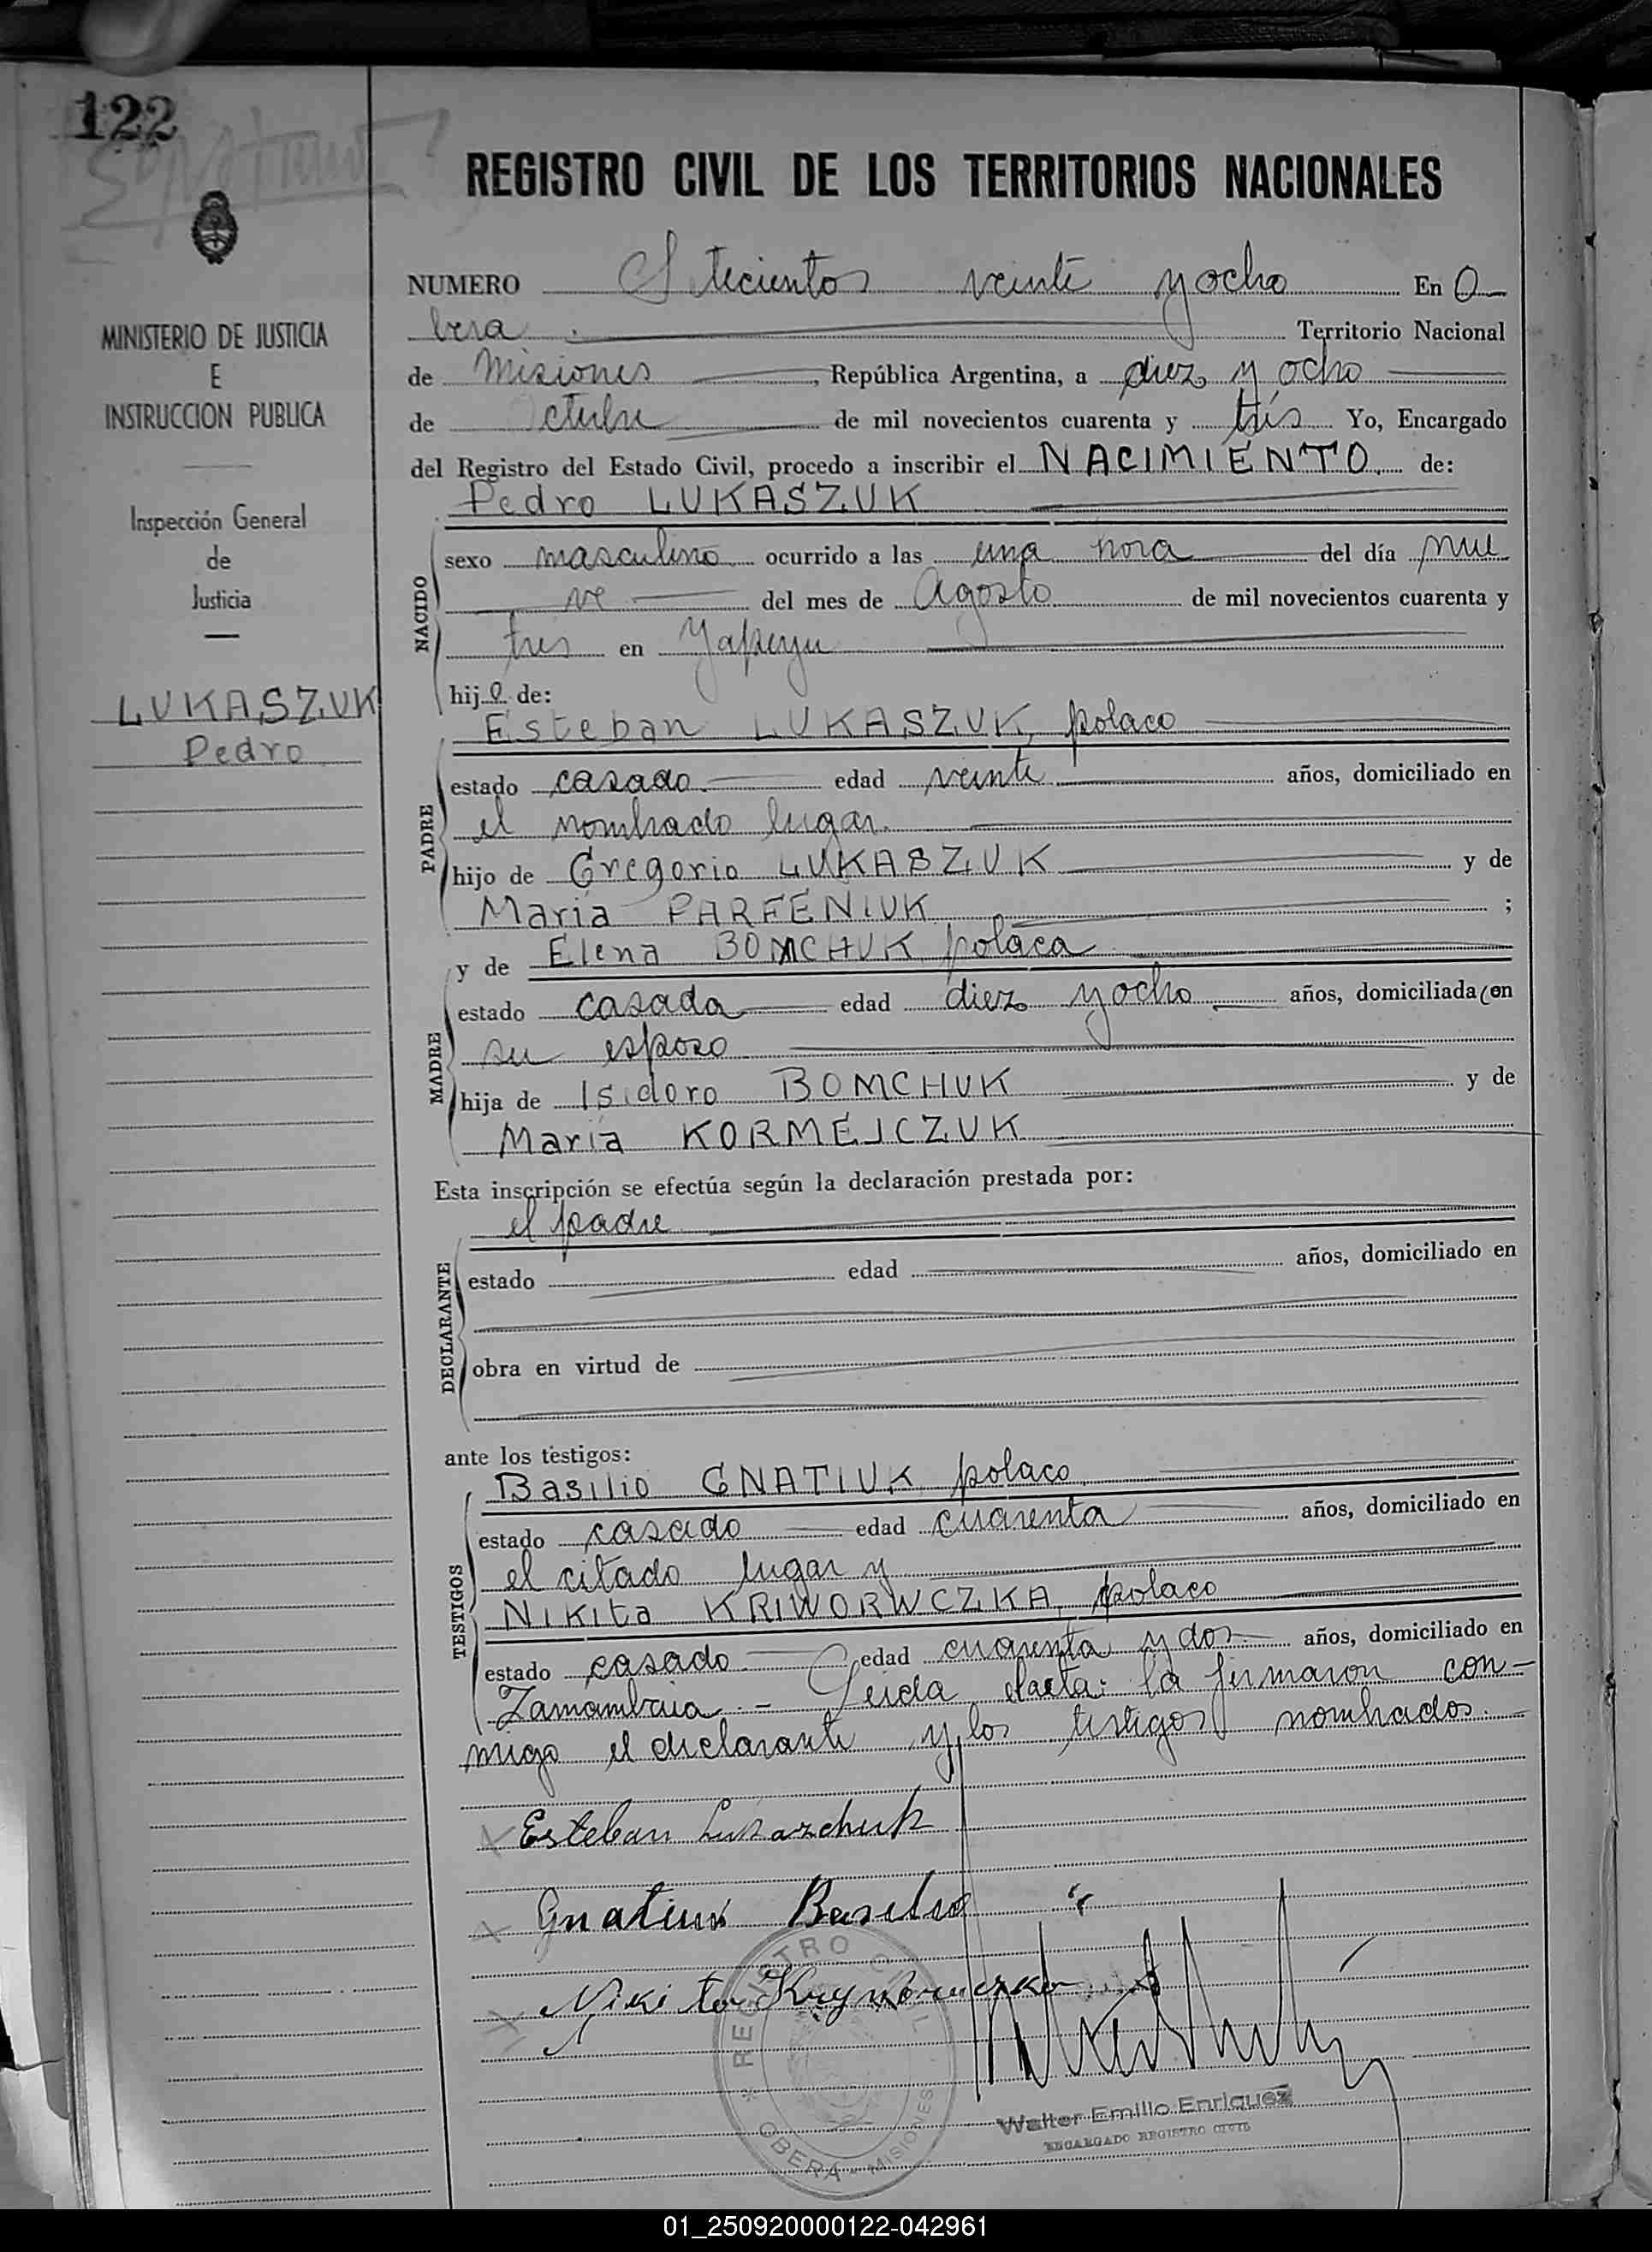 122
MINISTERIO DE JUSTICIA
E
INSTRUCCION PUBLICA
Inspección General
de
Justicia
LUKASZUK
Pedro
REGISTRO CIVIL DE LOS TERRITORIOS NACIONALES
NUMERO Setecientos veinte y ocho En O
bera Territorio Nacional
de Misiones, República Argentina, a diez y ocho
de Octubre de mil novecientos cuarenta y tres Yo, Encargado
del Registro del Estado Civil, procedo a inscribir el NACIMIENTO de:
Pedro LUKASZUK
NACIDO
sexo masculino ocurrido a las una hora del día nue
ve del mes de Agosto de mil novecientos cuarenta y
tres en Yapeyu
hijo de:
Esteban LUKASZUK, polaco
PADRE
estado casado edad veinte años, domiciliado en
el nombrado lugar.
hijo de Gregorio LUKASZUK y de
Maria PARFENIUK ;
y de Elena BOMCHUK polaca
MADRE
estado casada edad diez y ocho años, domiciliada (en
su esposo
hija de Isidoro BOMCHUK y de
María KORMEJCZUK
Esta inscripción se efectúa según la declaración prestada por:
el padre
DECLARANTE
estado edad años, domiciliado en
obra en virtud de
ante los testigos:
Basilio GNATIUK polaco
TESTIGOS
estado casado edad cuarenta años, domiciliado en
el citado lugar y
Nikita KRIWORWCZKA, polaco
estado casado edad cuarenta y dos años, domiciliado en
Zamambaia.- Leida el acta: la firmaron con-
migo el declarante y los testigos nombrados.-
Esteban Lukazchuk
Gnatiuk Basilio
Nikita
REGISTRO CIVIL
OBERA - MISIONES
Walter Emilio Enriquez
ENCARGADO REGISTRO CIVIL
01_250920000122-042961